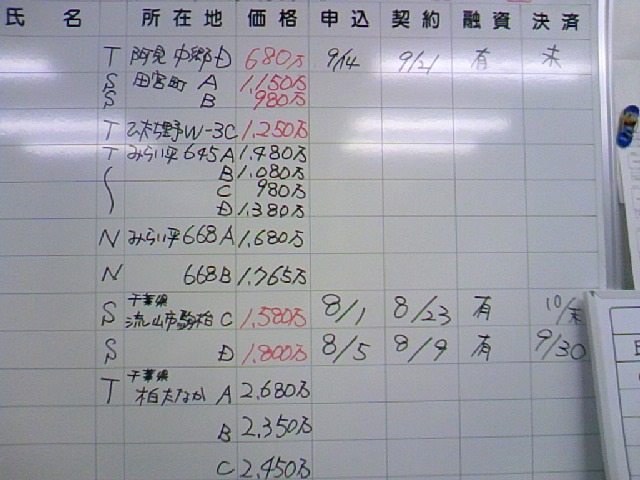 氏 名 所在地 価格 申込 契約 融資 決済
T 阿見 中郷 D 680万 9/14 9/21 有 未
S 田宮町 A 1,150万
S B 980万
T 乙戸野W-3C 1,250万
T みらい平645A 1,480万
B 1,080万
C 980万
D 1,380万
N みらい平668A 1,680万
N 668B 1,765万
S 千葉県
流山市 C 1,580万 8/1 8/23 有 10/末
S D 1,800万 8/5 8/9 有 9/30
T 千葉県
柏たなか A 2,680万
B 2,350万
C 2,450万